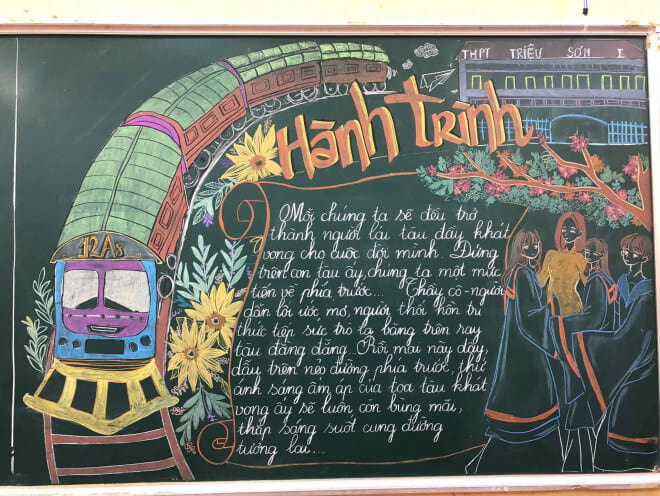 THPT TRIỆU SƠN I
Hành trình
12A8
Mỗi chúng ta sẽ đều trở
thành người lái tàu đầy khát
vọng cho cuộc đời mình. Đứng
trên con tàu ấy chúng ta một mực
tiến về phía trước... Thầy cô-người
dẫn lối ước mơ, người thổi hồn tri
thức tiếp sức trò băng trên ray
tàu đằng đẵng... Rồi mai này đây,
dẫu trên nẻo đường phía trước, thứ
ánh sáng ấm áp của toa tàu khát
vọng ấy sẽ luôn còn bùng mãi,
thắp sáng suốt cung đường
tương lai...